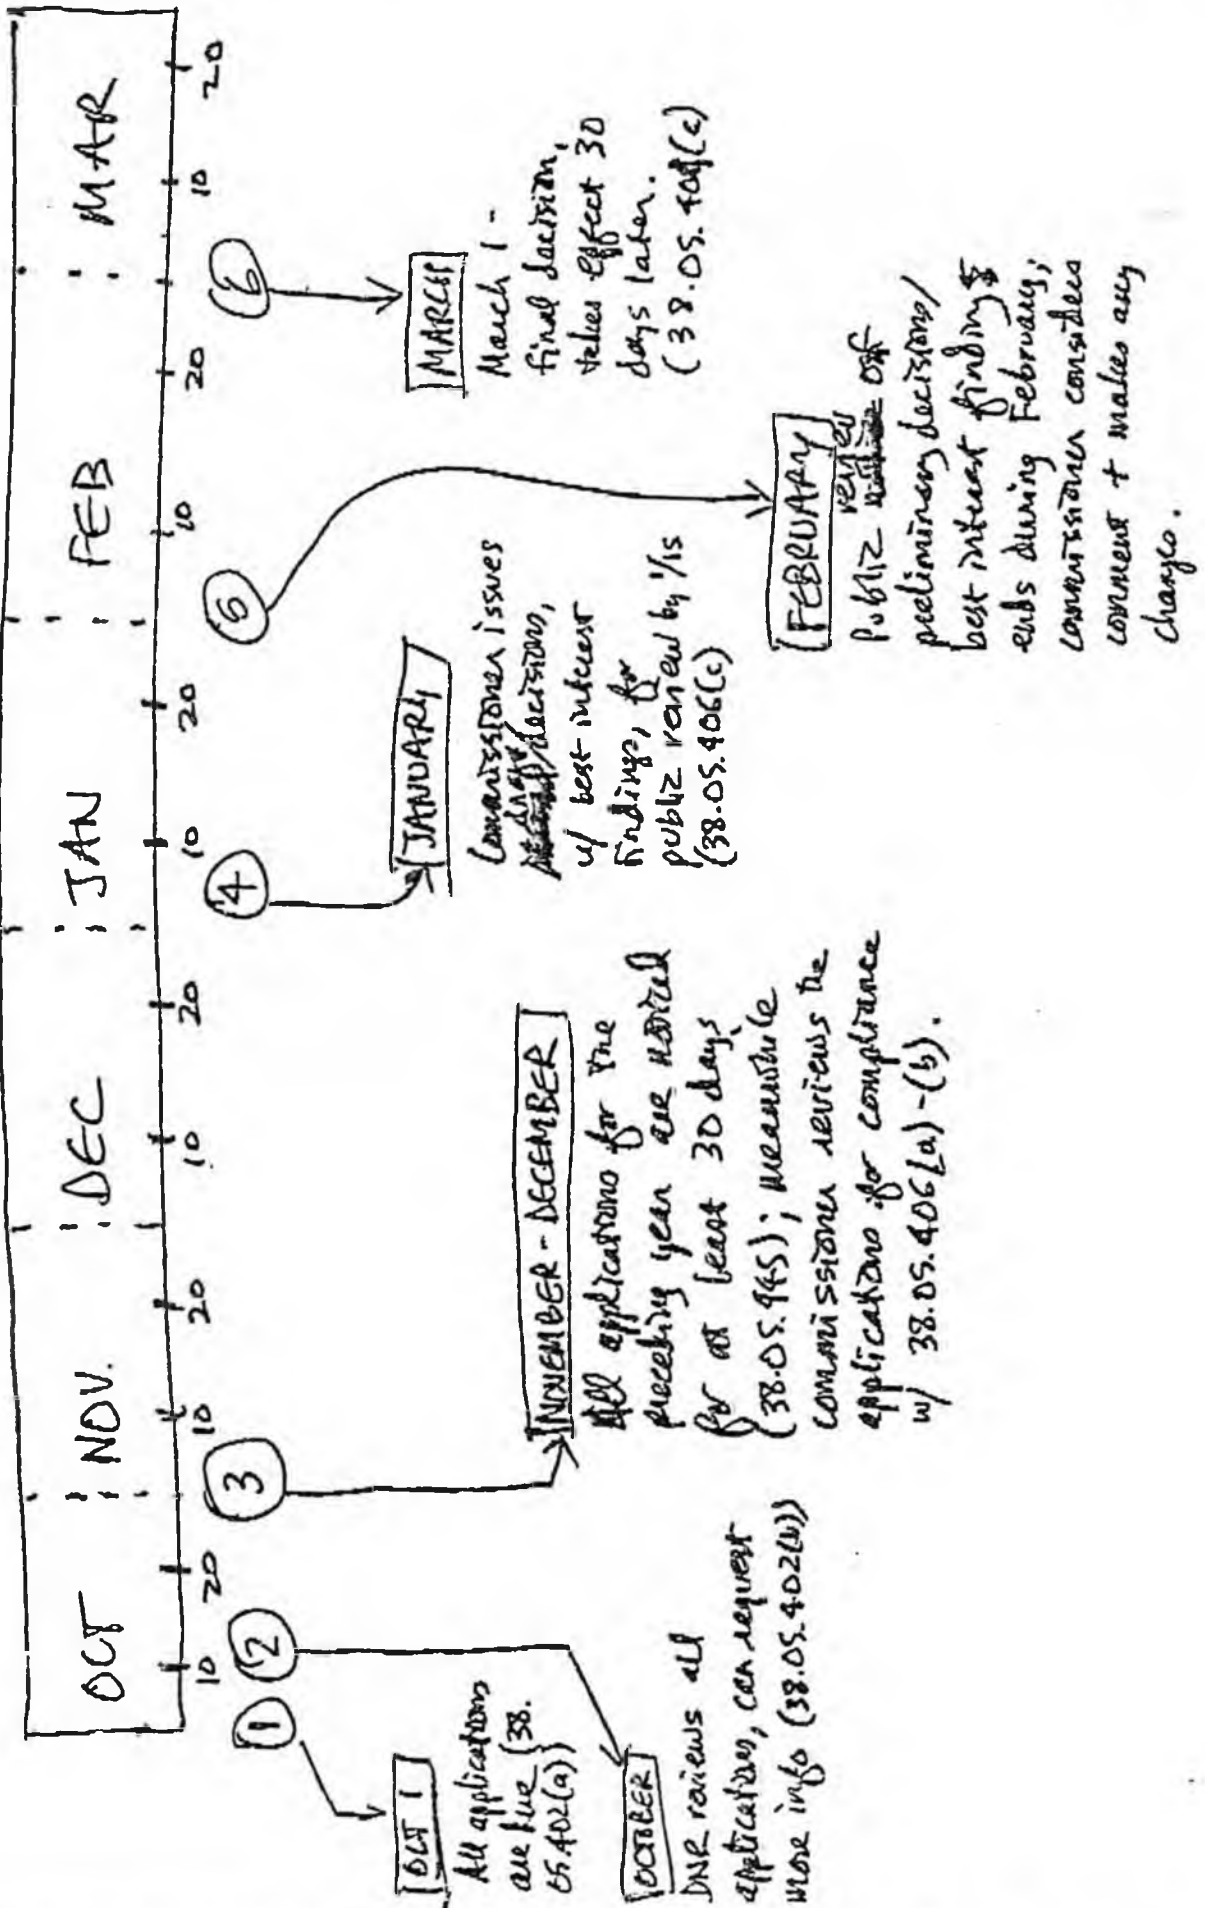 OCT : NOV. : DEC : JAN : FEB : MAR
10 20 10 20 10 20 10 20 10 20 10 20
1 2 3 4 5 6
OCT 1
All applications
are due (38.
05.402(a))
OCTOBER
DNR reviews all
applications, can request
more info (38.05.402(b))
NOVEMBER - DECEMBER
All applications for the
preceding year are noticed
for at least 30 days
(38.05.945); meanwhile
commissioner reviews the
applications for compliance
w/ 38.05.406(a)-(b).
JANUARY
Commissioner issues
draft decisions,
w/ best interest
findings, for
public review by 1/15
(38.05.406(c)
FEBRUARY
Public review of
preliminary decisions/
best interest findings
ends during February;
commissioner considers
comment + makes any
changes.
MARCH
March 1 -
final decision,
takes effect 30
days later.
(38.05.409(c)